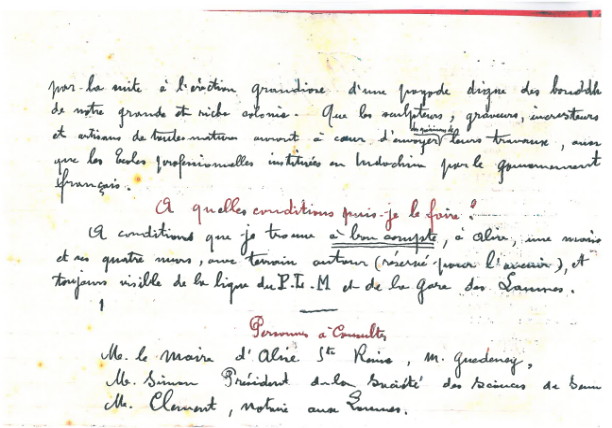 par la suite à l'érection grandiose d'une pagode digne des bouddh
de notre grande et riche colonie. Que les sculpteurs, graveurs, incrusteurs
et artisans de toutes natures auront à cœur d'envoyer leurs travaux, ainsi
que les Ecoles professionnelles instituées en Indochine par le gouvernement
français.
A quelles conditions puis-je le faire ?
A conditions que je trouve à bon compte, à Alise, une mais
et ses quatre murs, avec terrain autour (réservé pour l'avenir), et
toujours visible de la ligne du P.L.M et de la gare des Laumes.
Personnes à Consulter
M. le Maire d'Alise Ste Reine, M. Guedeney,
M. Simon Président de la Société des Sciences de Semu
M. Clement, notaire aux Laumes.